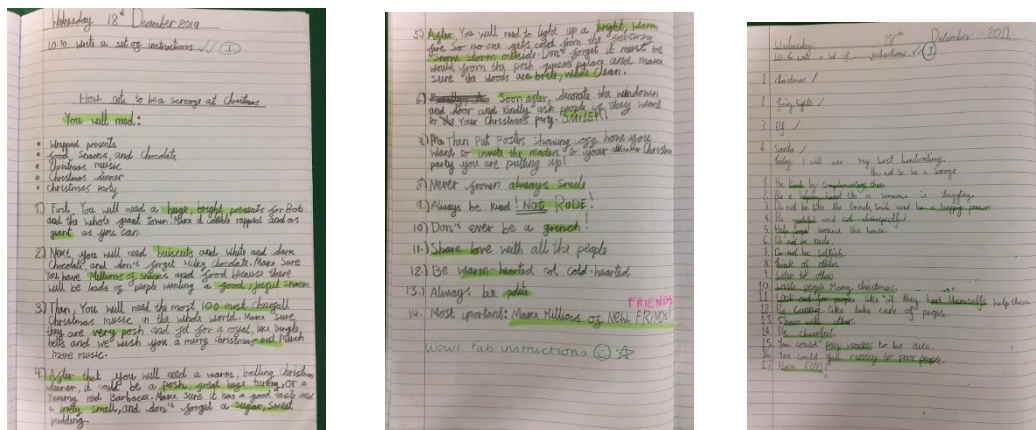 Wednesday 18th December 2019
10.30 Write a set of instructions
How note to be a scrooge at christmas
You will need:
• Wrapped presents
• Food, Snacks, and Chocolate
• Christmas music
• Christmas dinner
• Christmas party
1.) First, You will need a huge, bright presents for Bob
and the whole town. Make it double rapped and as
giant as you can.
2.) Next, you will need and white and dark
Chocolate, and don't forget Milky Chocolate. Make Sure
You have Millions of snacks and food because there
will be loads of people wanting a good,
3.) Than, You will need the most 100 most
Christmas music in the whole world. Make sure
they are very posh and fit for a royal, like Jungle
bells and we wish you a merry Christmas but much
more music.
4.) After that you will need a warm, Christmas
dinner, it could be a posh, great huge turkey, or a
Yummy Make sure it has a good taste and
a lovely smell, and don't forget a sugar, sweet
pudding.
5.) After You will need to light up a bright, warm
fire So no one gets cold from the
Snow storm outside. Don't forget it must be
from the posh queen's palace and make
sure the woods are white clean.
6.) Soon after, decorate tha
and door and kindly ask people if they want
to Your Christmas party. SMILEY!
7.) Than Put Posters showing your home you
want to invite the readers to your Christmas
party you are putting up!
8.) Never frown always Smile
9.) Always be kind! NOT RUDE!
10.) Don't ever be a grinch!
11.) Share love with all the people
12.) Be warm-hearted not cold-hearted
13.) Always be polite
FRIENDS
14. Most iportant: Make Millions of NEW FRINDS!
Wow! Fab instructions
Wednesday 18th December 2019
1 christmas
2 fairy lights
3 Elf
4 Santa
today I will use my best handwriting.
not to be a Scrooge
1. Be kind by complimenting them
5. Help people around the house.
6. Do not be rude.
7. Do not be selfish.
8. Think of others
9. Listen to others
10. people Merry Christmas.
11. Look out for people like if they hurt themselfs help them
12. Be caring like take care of people.
13. Share with other.
14. Be cheerful.
15. You could to be nice.
16. You could give money to poor people.
17. Have FUN!